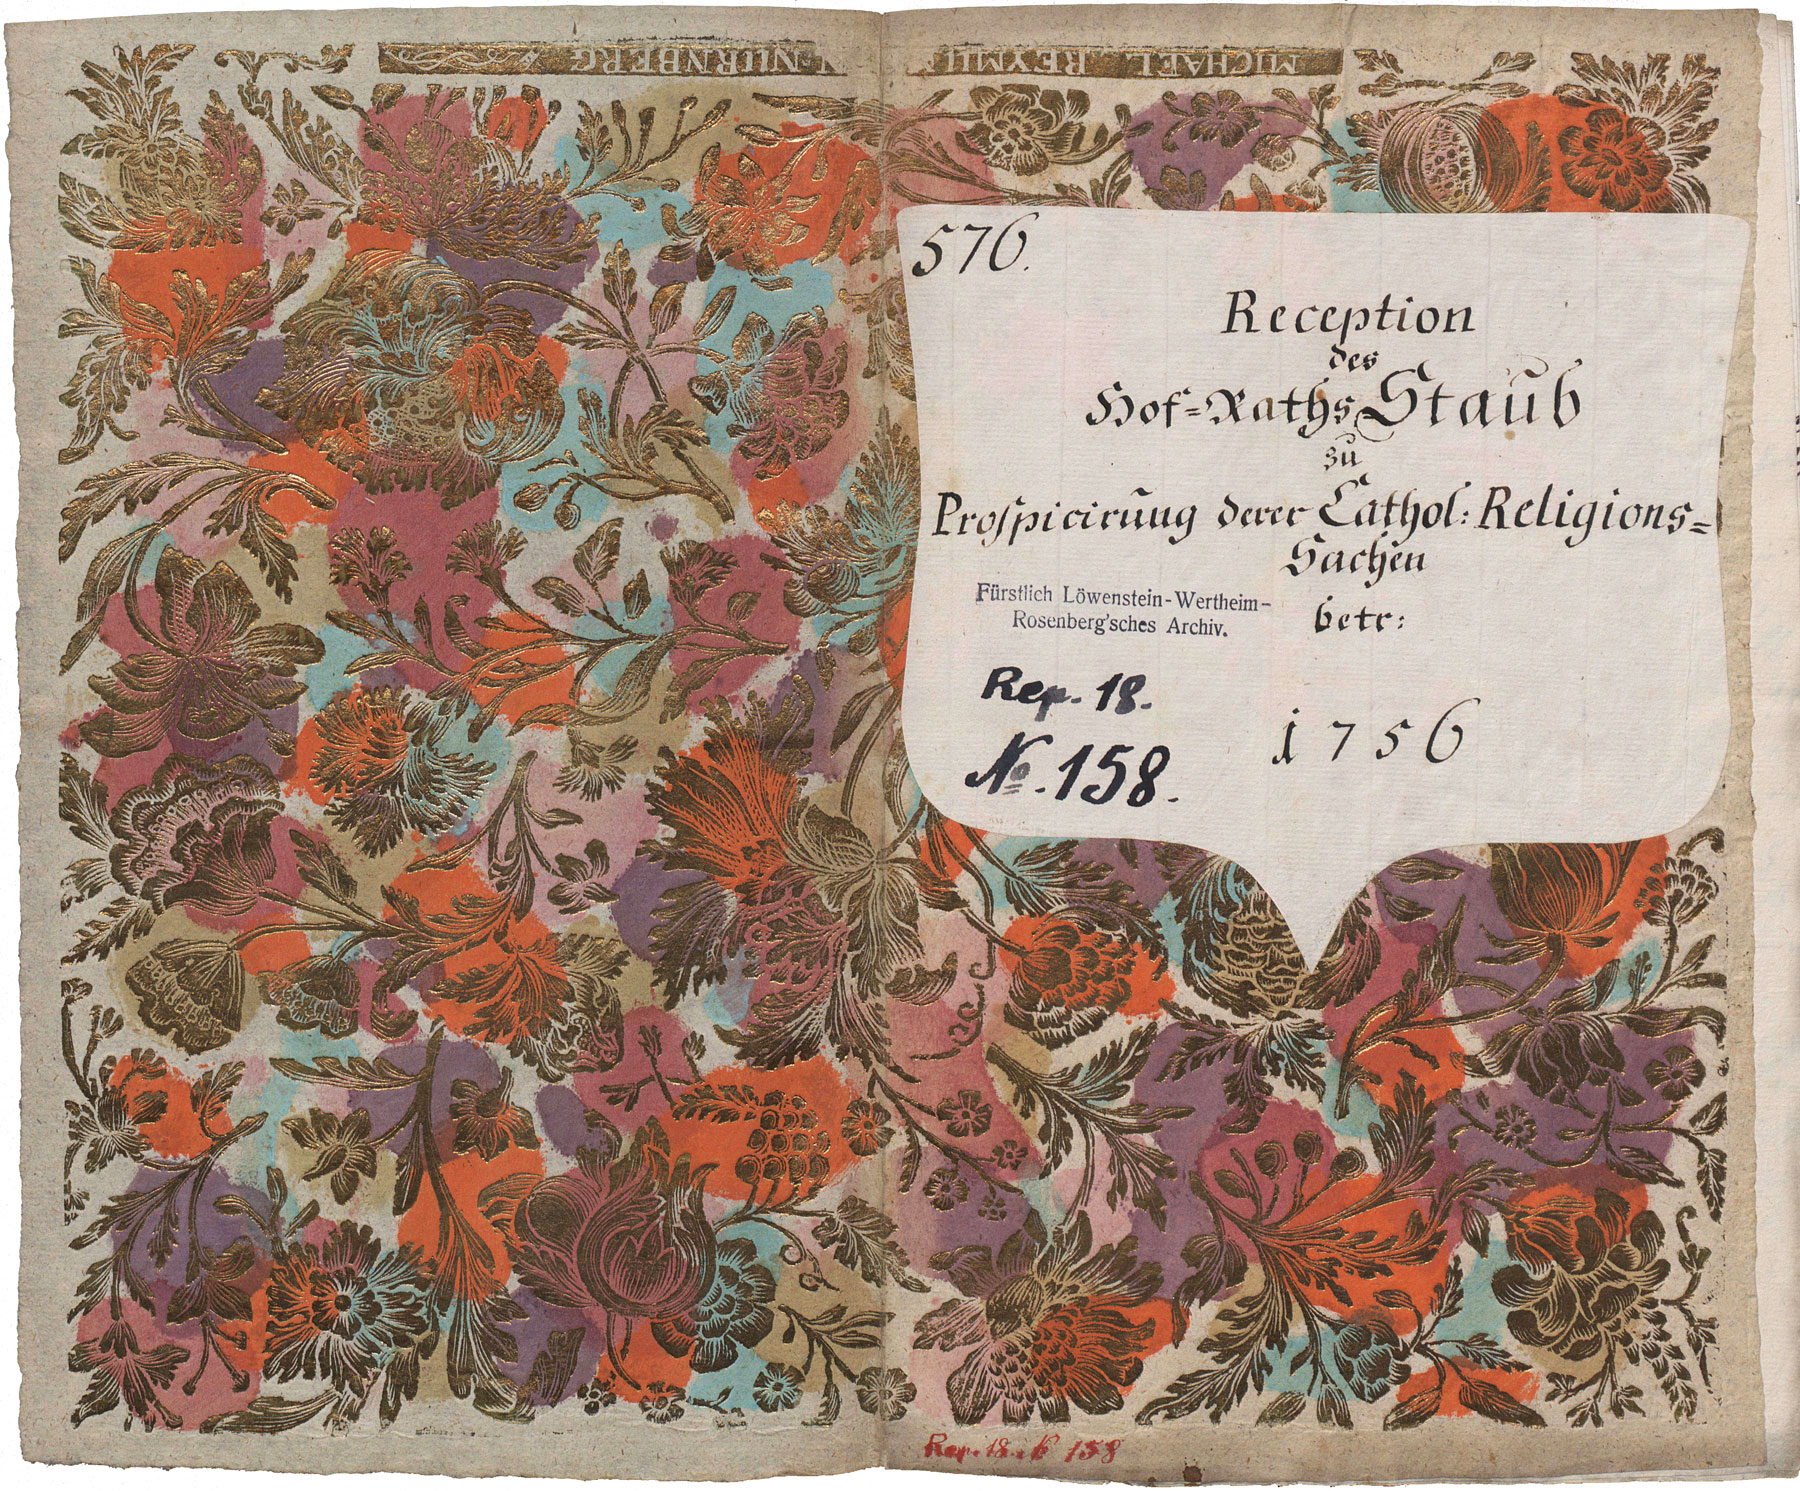 IN NÜRNBERG
MICHAEL REYMU
576.
Reception
des
Hof=Raths Staub
zu
Prospicirung derer Cathol: Religions=
Sachen
betr:
Fürstlich Löwenstein-Wertheim-
Rosenberg'sches Archiv.
Rep. 18.
No. 158.
1756
Rep. 18. N 158